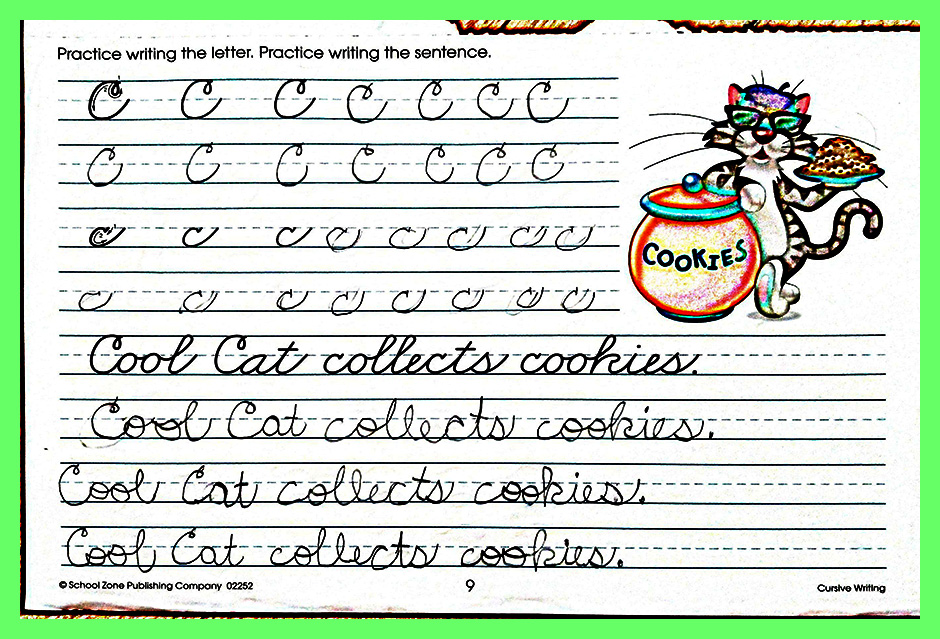 Practice writing the letter. Practice writing the sentence.
C C C C C C C
C C C C C C C
c c c c c c c c
c c c c c c c c
COOKIES
Cool Cat collects cookies.
Cool Cat collects cookies.
Cool Cat collects cookies.
Cool Cat collects cookies.
© School Zone Publishing Company 02252 9 Cursive Writing